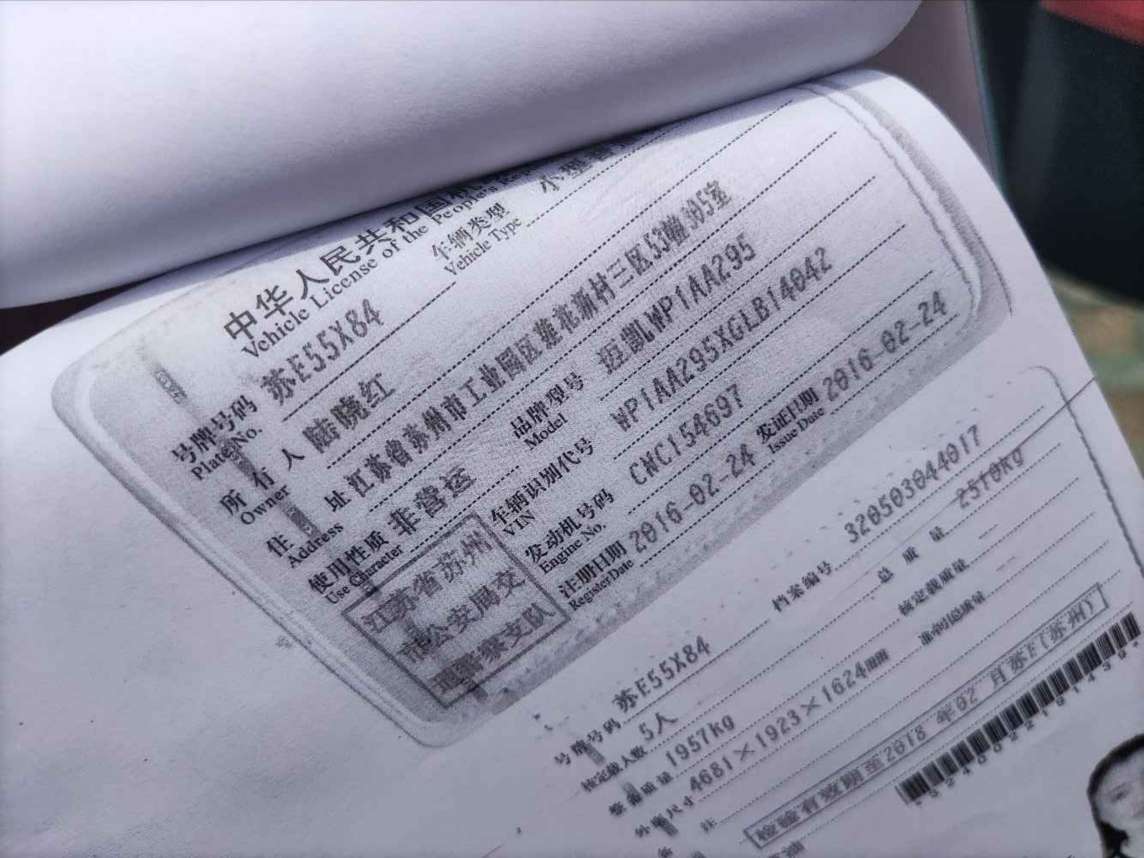 中华人民共和国
Vehicle License of the People's
号牌号码 苏E55X84 车辆类型 小型
Plate No. Vehicle Type
所有人 陆晓红
Owner
住址 江苏省苏州市工业园区莲花新村三区53幢305室
Address
使用性质 非营运 品牌型号 迈凯WP1AA295
Use Character Model
江苏省苏州
市公安局交
通警察支队
车辆识别代号 WP1AA295XGLB14042
VIN
发动机号码 CNC154697
Engine No.
注册日期 2016-02-24 发证日期 2016-02-24
Register Date Issue Date
号牌号码 苏E55X84 档案编号 320503044017
核定载人数 5人 总质量 2510kg
整备质量 1957kg 核定载质量
外廓尺寸 4681×1923×1624mm 准牵引总质量
检验有效期至2018年02月苏E(苏州)